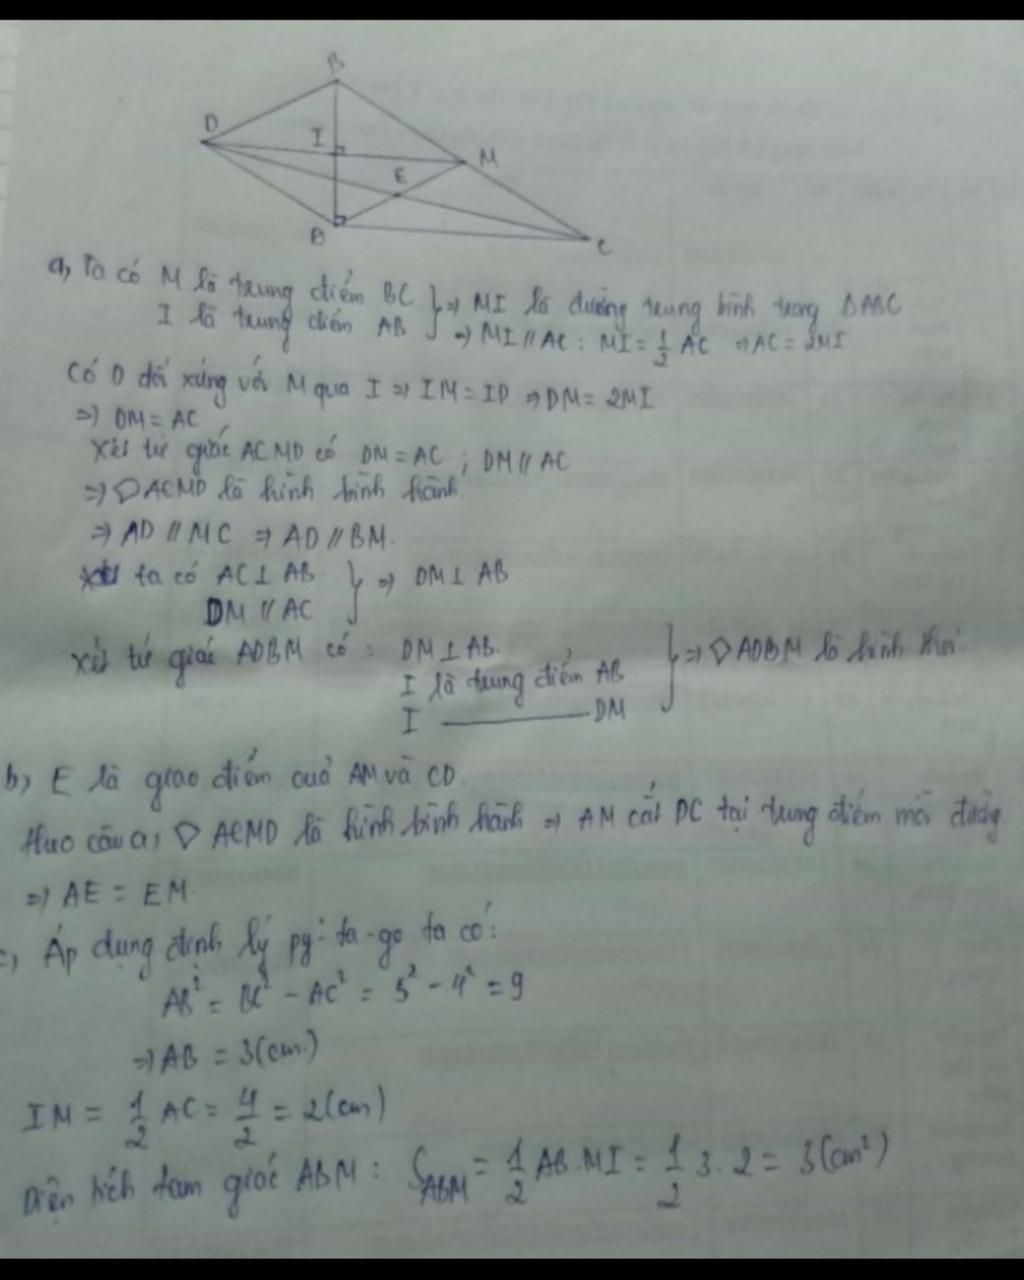 B
D
I
M
E
B
C
a, Ta có M là trung điểm BC } => MI là đường trung bình trong ΔABC
I là trung điểm AB => MI // AC : MI = 1/2 AC => AC = 2MI
Có D đối xứng với M qua I => IM = ID => DM = 2MI
=> DM = AC
Xét tứ giác ACMD có DM = AC ; DM // AC
=> ▱ACMD là hình bình hành
=> AD // MC => AD // BM.
ta có AC ⊥ AB } => DM ⊥ AB
DM // AC
Xét tứ giác ADBM có : DM ⊥ AB. } => ▱ADBM là hình thoi
I là trung điểm AB
I ———— DM
b, E là giao điểm cuả AM và CD.
theo câu a, ▱ ACMD là hình bình hành => AM cắt DC tại trung điểm mỗi đường.
=> AE = EM.
c, Áp dụng định lý py-ta-go ta có:
AB² = BC² - AC² = 5² - 4² = 9
=> AB = 3(cm)
IM = 1/2 AC = 4/2 = 2(cm)
Diện tích tam giác ABM : S_ABM = 1/2 AB.MI = 1/2 3.2 = 3(cm²)